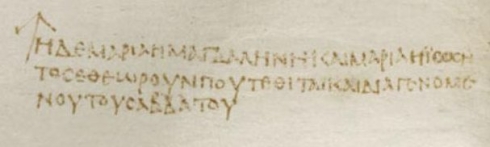 ↑ΗΔΕΜΑΡΙΑΗΜΑΓΔΑΛΗΝΗΚΑΙΜΑΡΙΑΗΪΩϹΗ
ΤΟϹΕΘΕΩΡΟΥΝΠΟΥΤΕΘΙΤΑΙΚΑΙΔΙΑΓΕΝΟΜΕ
ΝΟΥΤΟΥϹΑΒΒΑΤΟΥ